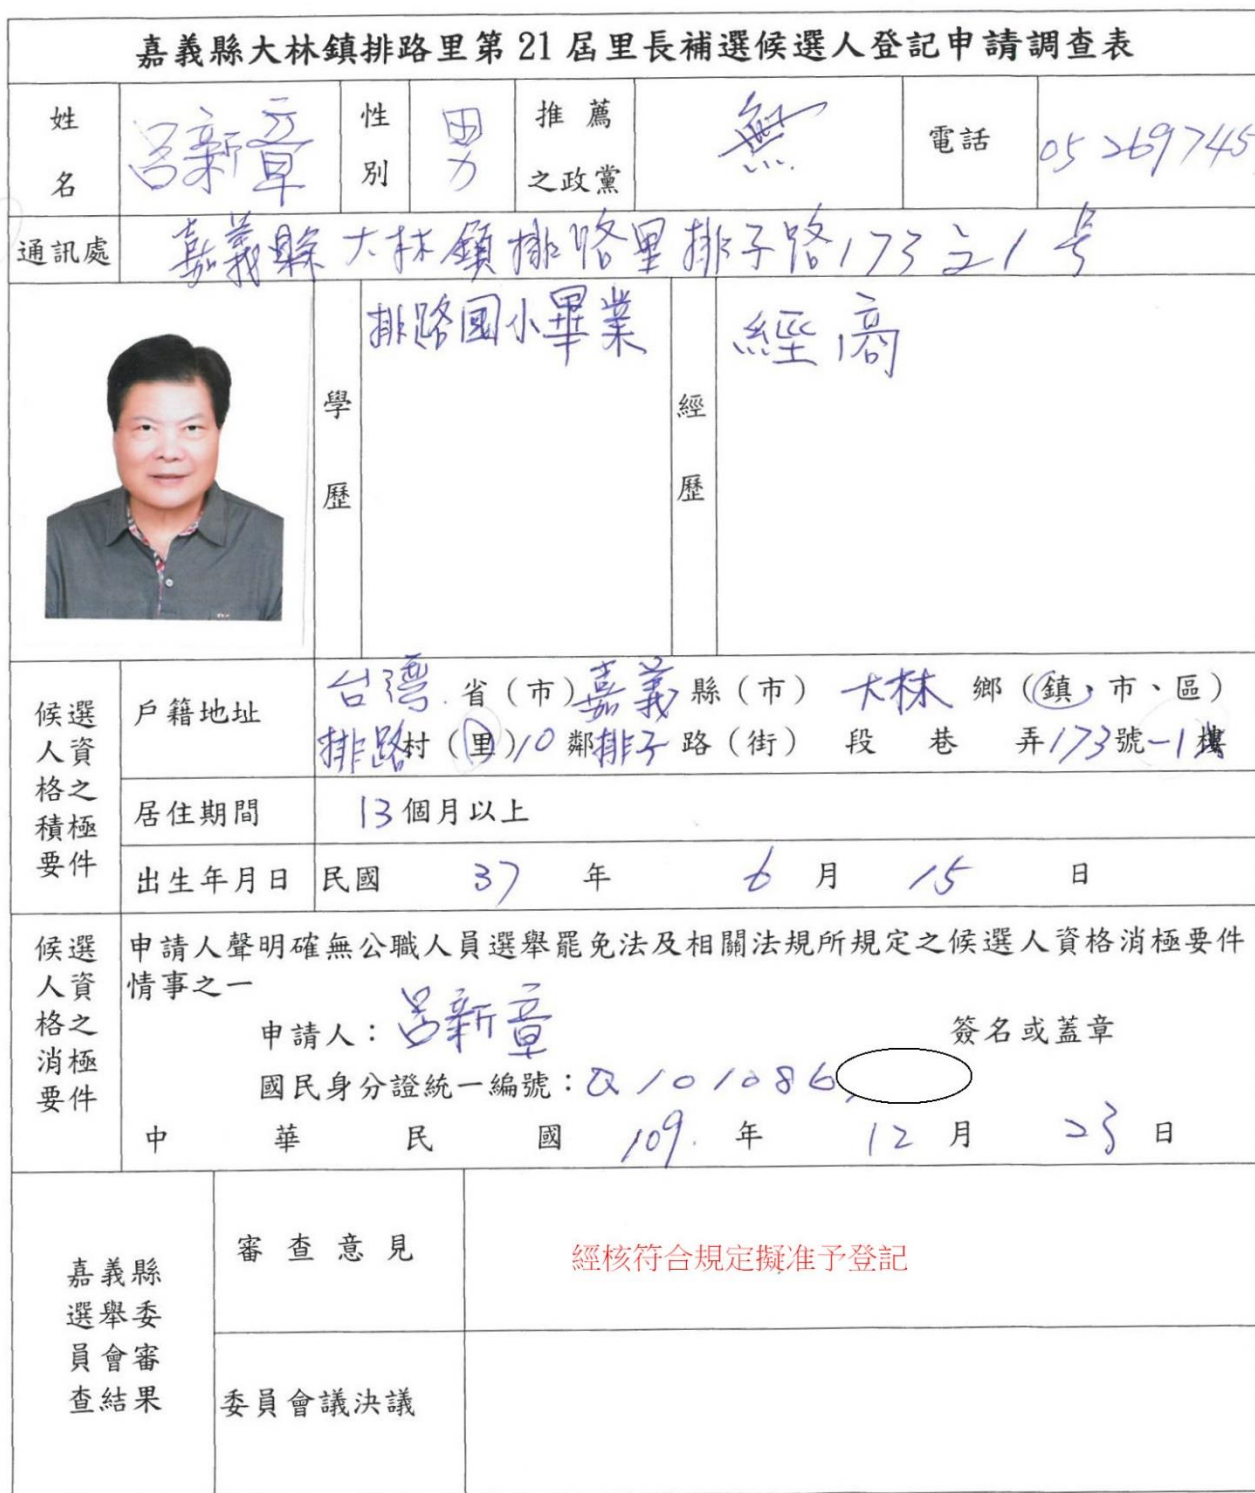 嘉義縣大林鎮排路里第21屆里長補選候選人登記申請調查表
姓名 呂新章 性別 男 推薦之政黨 無 電話 05 269745
通訊處 嘉義縣大林鎮排路里排子路173之1号
學歷 排路國小畢業 經歷 經商
候選人資格之積極要件
戶籍地址 台灣省（市）嘉義縣（市） 大林 鄉（鎮，市、區）
排路村（里）10鄰排子路（街） 段 巷 弄173號-1樓
居住期間 13個月以上
出生年月日 民國 37 年 6 月 15 日
候選人資格之消極要件
申請人聲明確無公職人員選舉罷免法及相關法規所規定之候選人資格消極要件
情事之一
申請人：呂新章 簽名或蓋章
國民身分證統一編號：Q101086
中華民國 109. 年 12 月 23 日
嘉義縣選舉委員會審查結果
審查意見 經核符合規定擬准予登記
委員會議決議